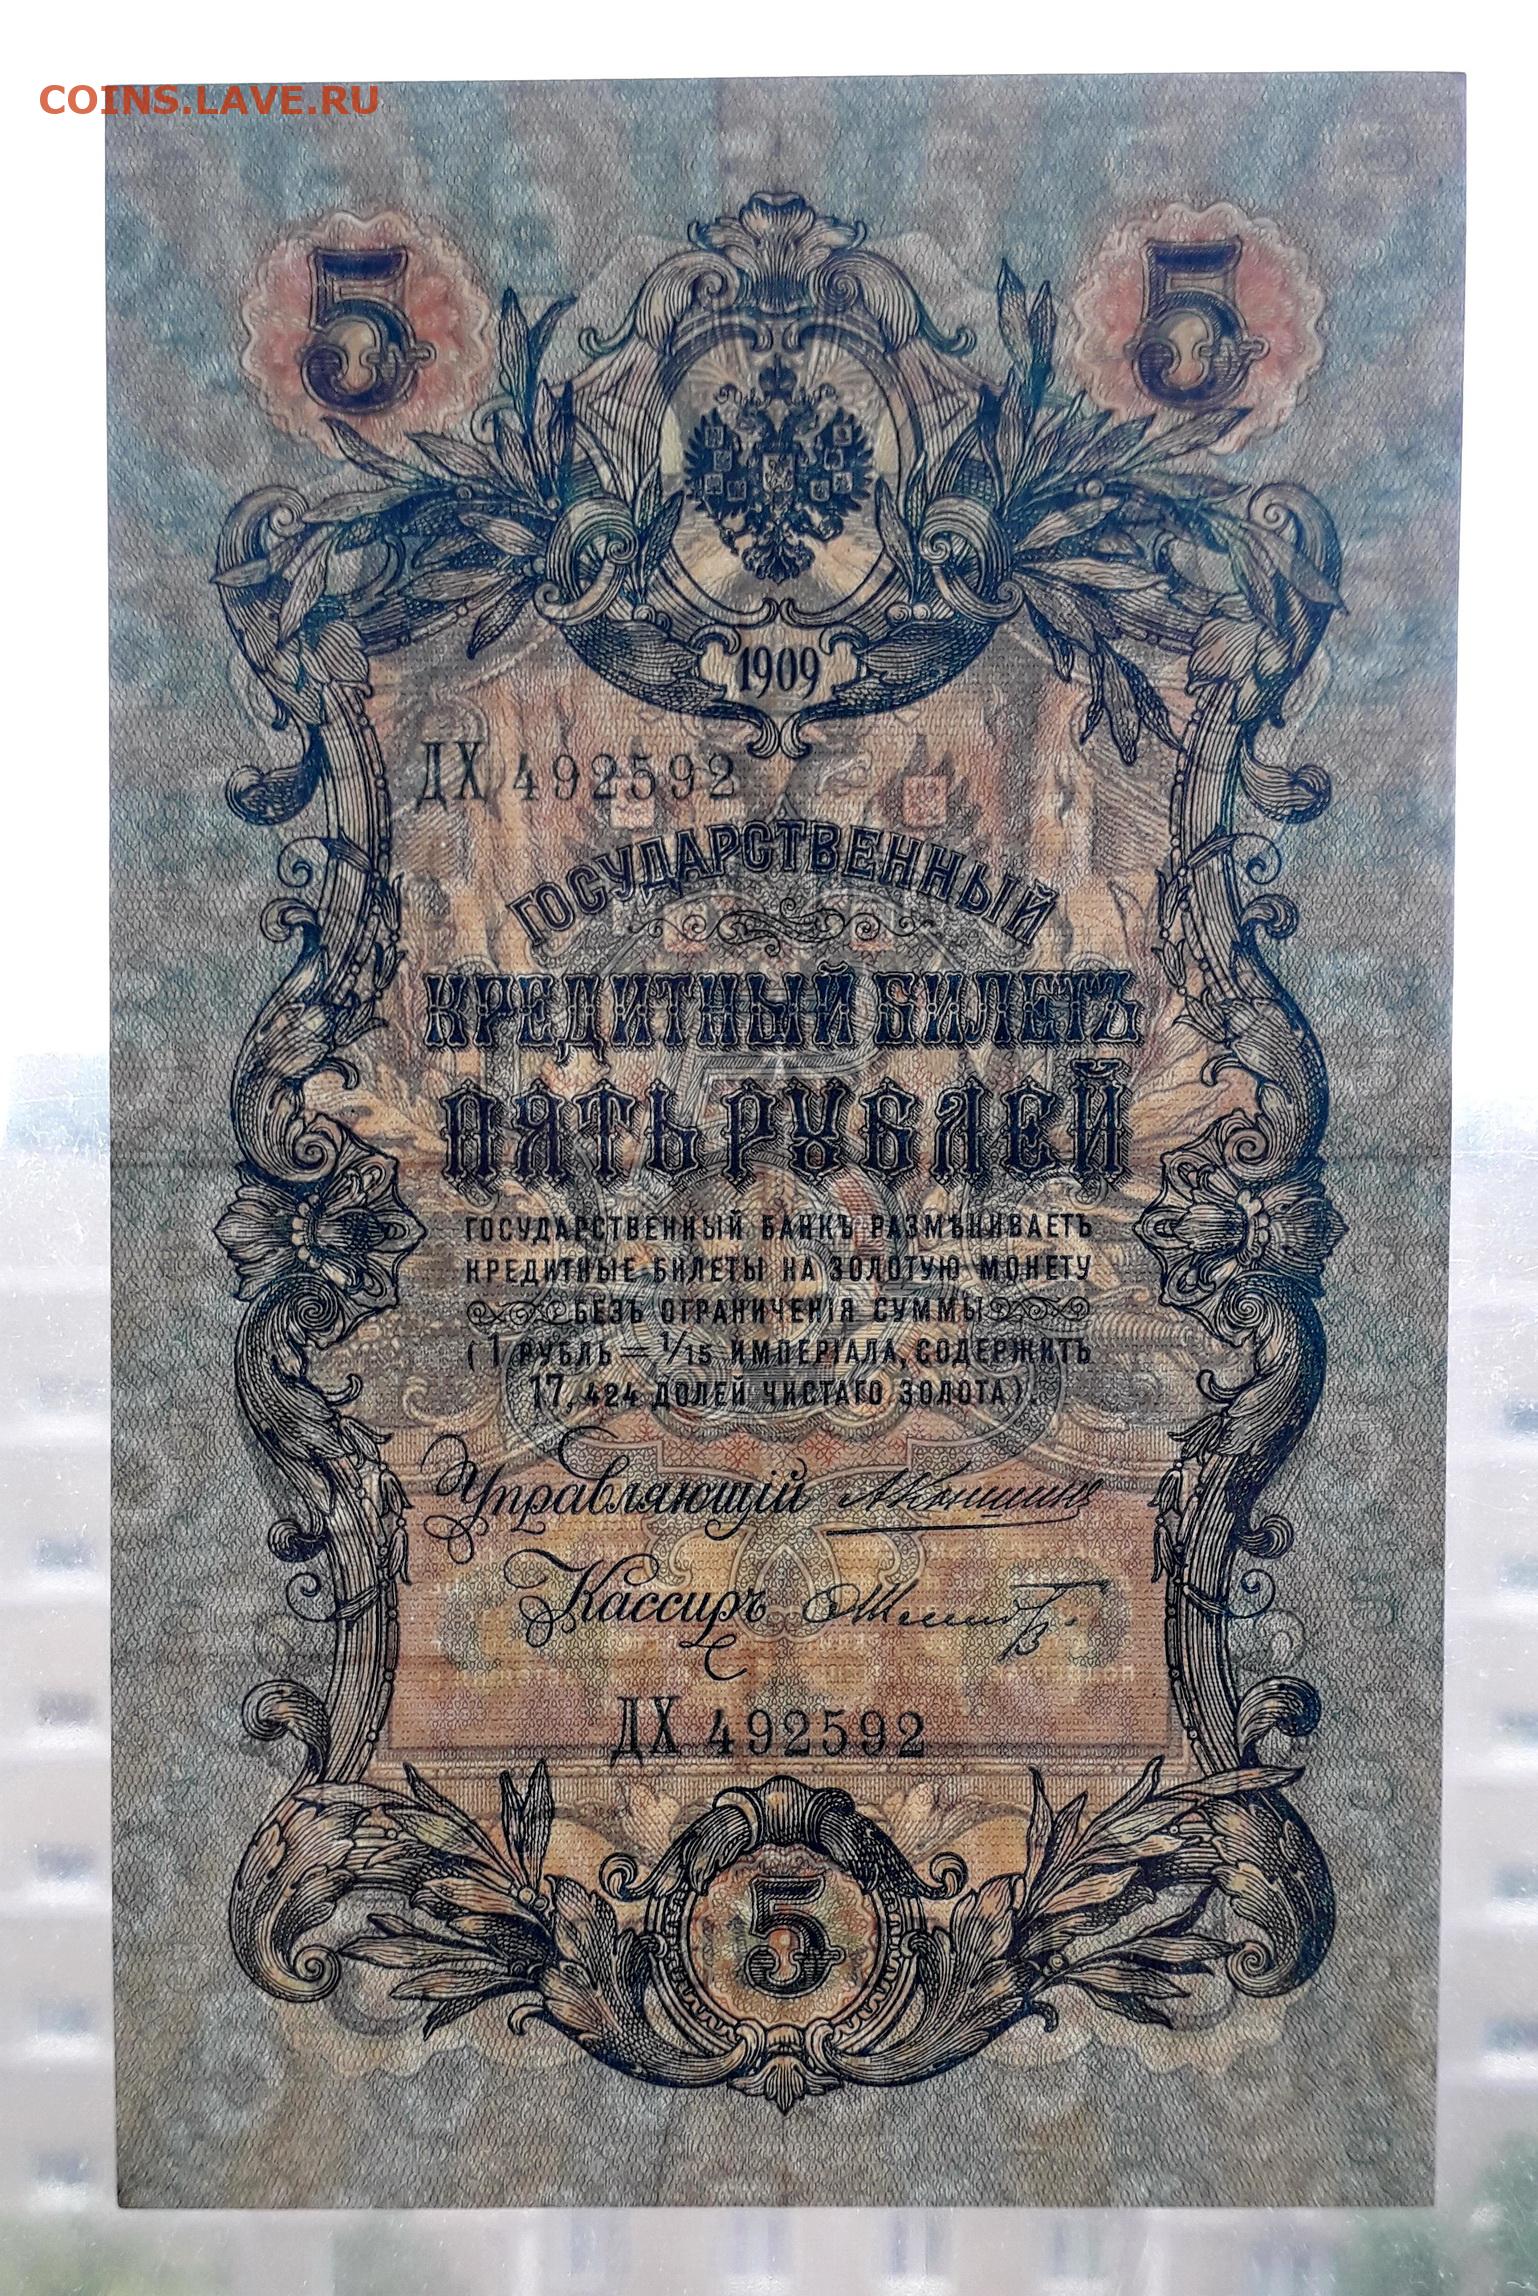 COINS.LAVE.RU
5 5
1909
ДХ 492592
ГОСУДАРСТВЕННЫЙ
КРЕДИТНЫЙ БИЛЕТЪ
ПЯТЬ РУБЛЕЙ
ГОСУДАРСТВЕННЫЙ БАНКЪ РАЗМѢНИВАЕТЪ
КРЕДИТНЫЕ БИЛЕТЫ НА ЗОЛОТУЮ МОНЕТУ
БЕЗЪ ОГРАНИЧЕНІЯ СУММЫ
(1 РУБЛЬ = 1/15 ИМПЕРІАЛА, СОДЕРЖИТЪ
17,424 ДОЛЕЙ ЧИСТАГО ЗОЛОТА).
Управляющій АКоншинъ
Кассиръ
ДХ 492592
5